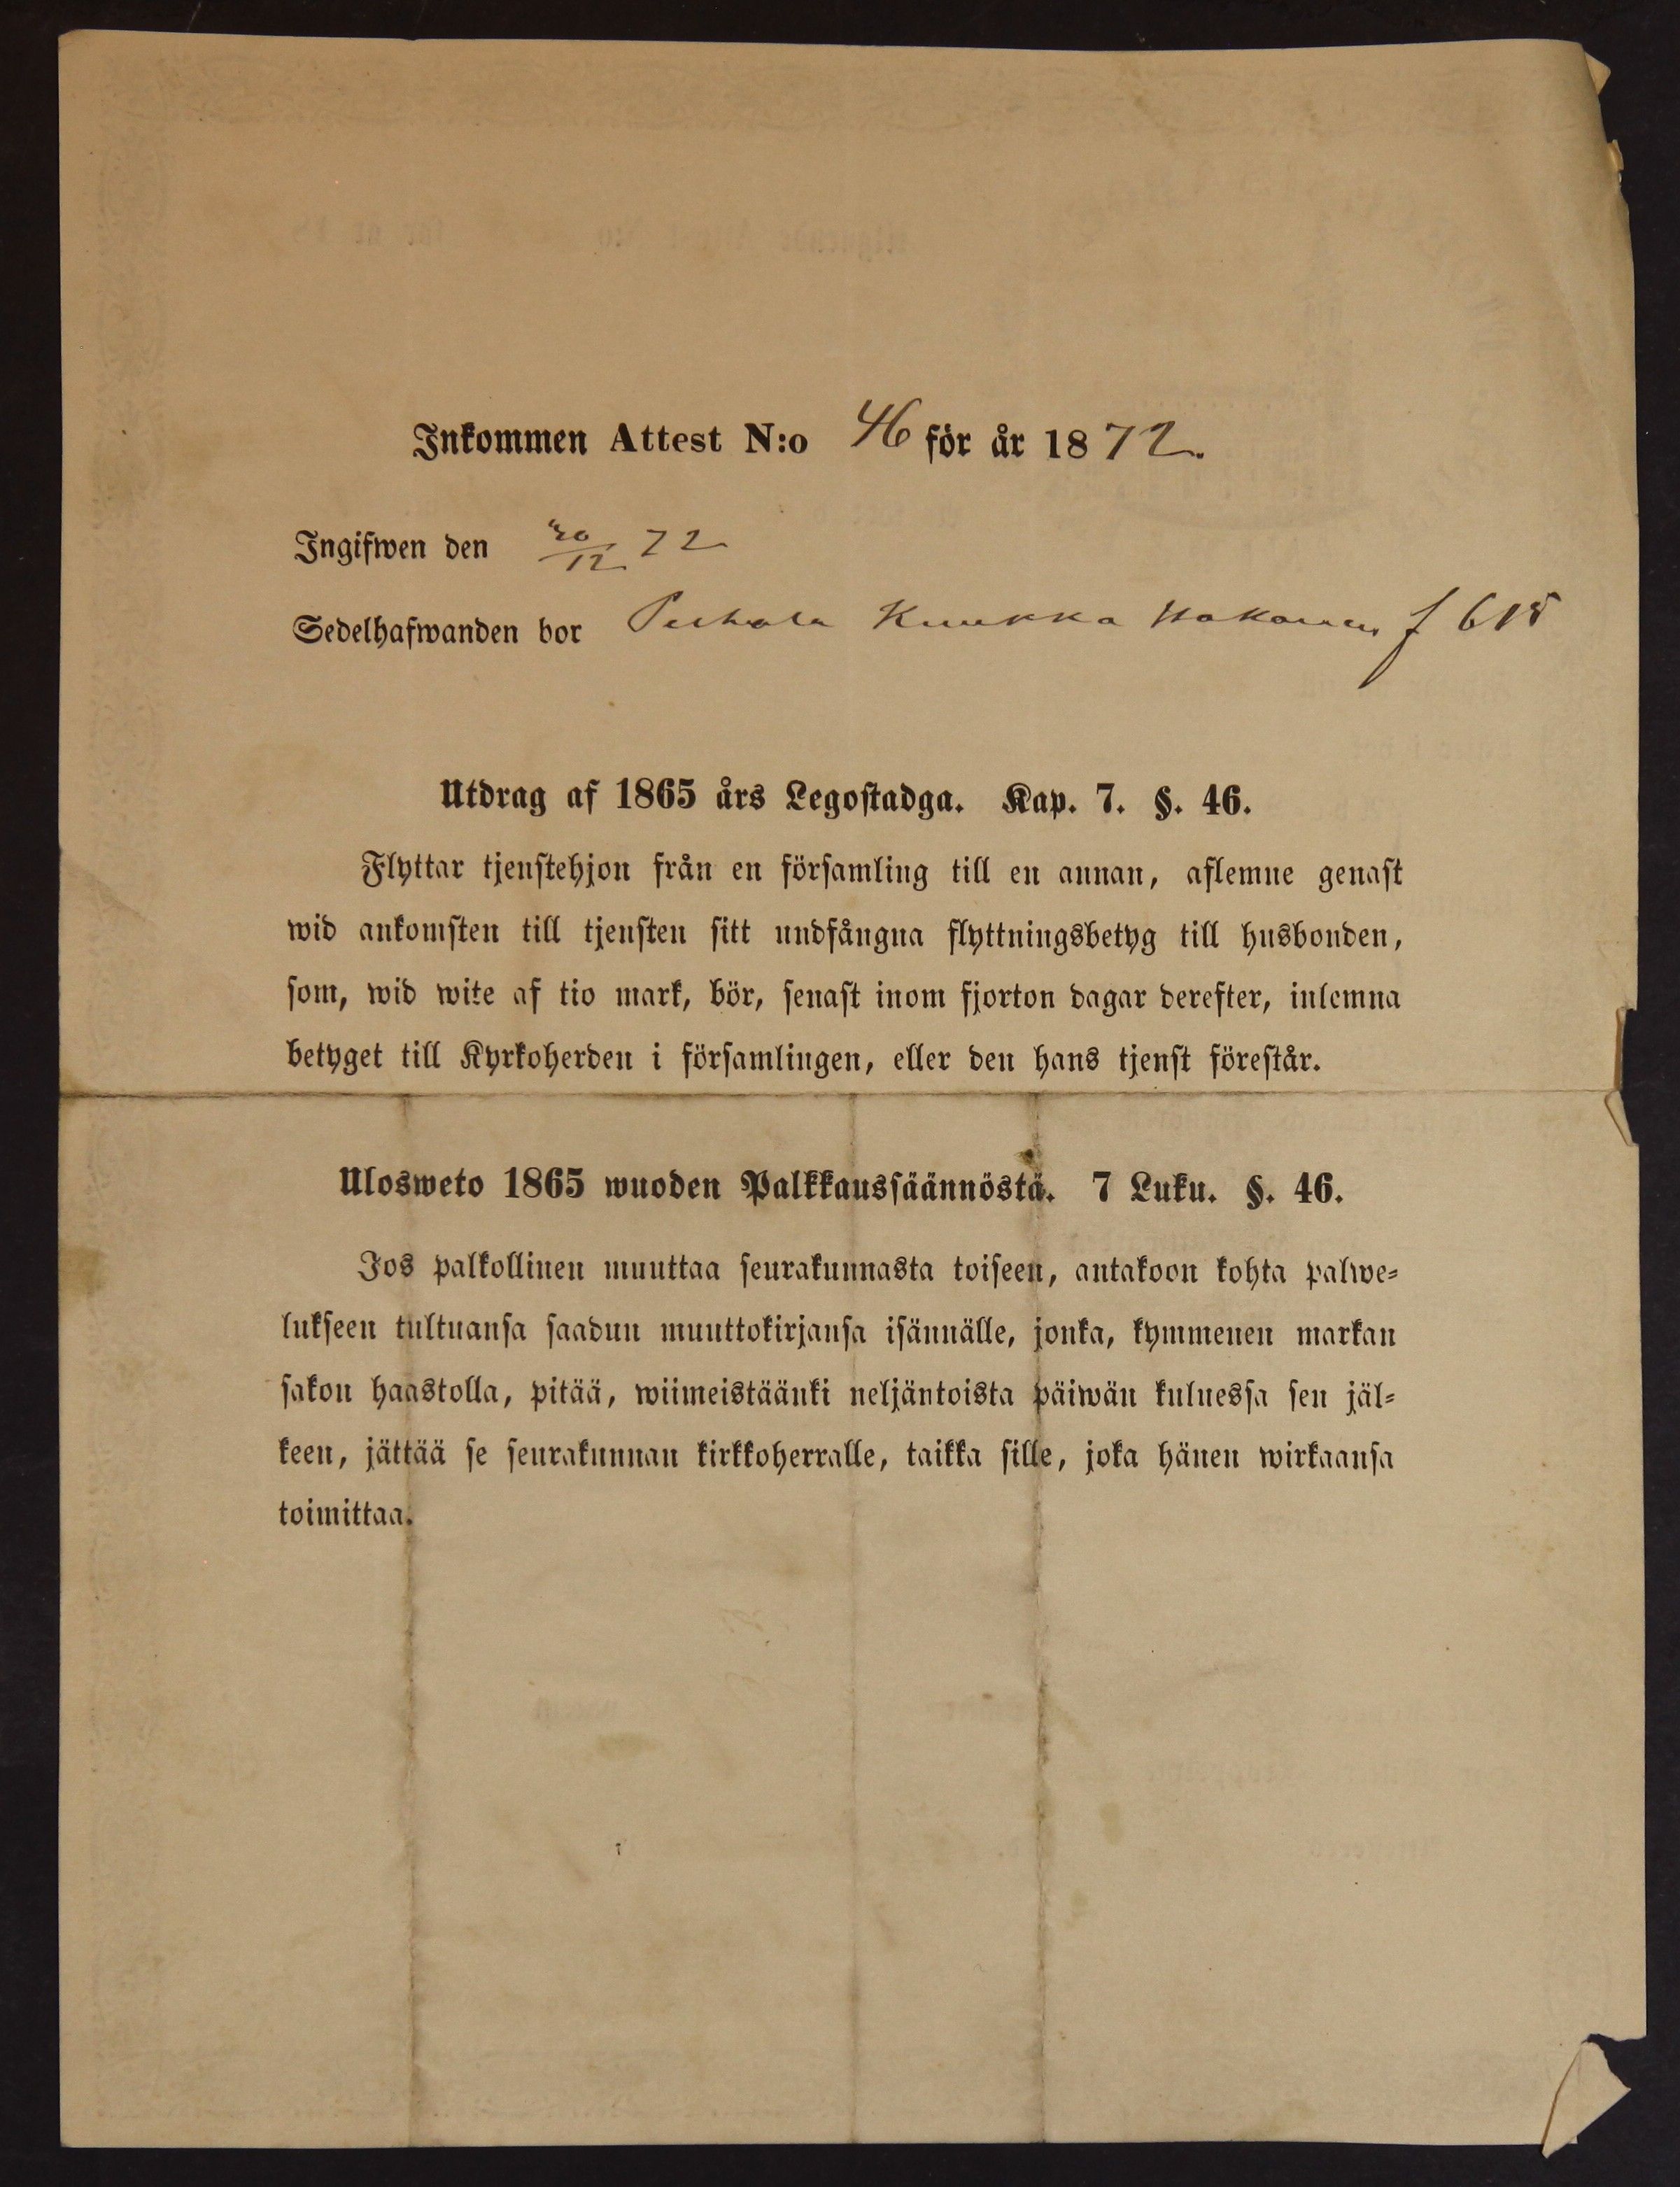 Inkommen Attest N:o 46 för år 1872.
Ingifwen den 30/12 72
Sedelhafwanden bor Kuukka f 618
Utdrag af 1865 års Legostadga. Kap. 7. §. 46.
Flyttar tjenstehjon från en församling till en annan, aflemne genast
wid ankomsten till tjensten sitt undfångna flyttningsbetyg till husbonden,
som, wid wite af tio mark, bör, senast inom fjorton dagar derefter, inlemna
betyget till Kyrkoherden i församlingen, eller den hans tjenst förestår.
Ulosweto 1865 wuoden Palkkaussäännöstä. 7 Luku. §. 46.
Jos palkollinen muuttaa seurakunnasta toiseen, antakoon kohta palwe-
lukseen tultuansa saadun muuttokirjansa isännälle, jonka, kymmenen markan
sakon haastolla, pitää, wiimeistäänki neljäntoista päiwän kuluessa sen jäl-
keen, jättää se seurakunnan kirkkoherralle, taikka sille, joka hänen wirkaansa
toimittaa.